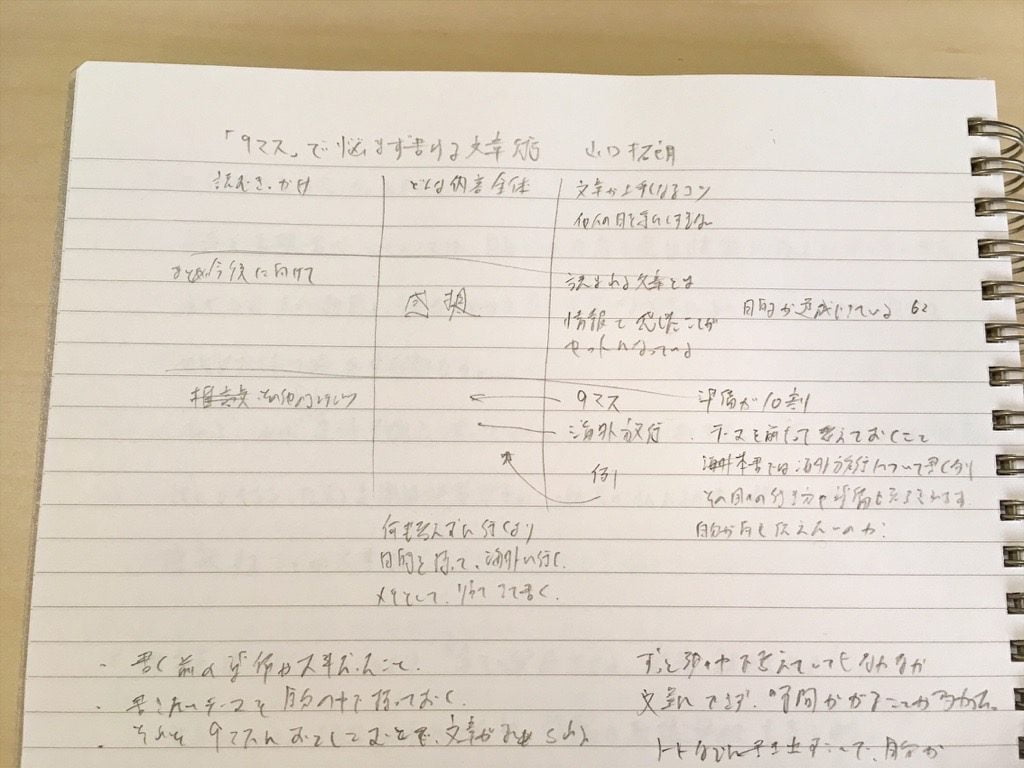 「9マス」で悩まず書ける文章術 山口拓朗
読むきっかけ
どんな内容全体
文章が上手くなるコツ
他人の目を気にしすぎない
まとめ今後に向けて
感想
読まれる文章とは
情報と感じたことが
セットになっている
目的が達成している 62
その他
9マス
海外旅行
例
準備が10割
テーマを前もって考えておくこと
本書では海外旅行について書く例
自分が何を伝えたいのか?
何も考えずに行くより
目的を持って、海外に行く。
メモとして、 書く。
・書く前の準備が大事だということ。
・書きたいテーマを自分の中で持っておく。
・それを9マスに おとすことで、文章が
ずっと頭の中で考えていてもなかなか
文章にできず、時間かかることが
ノートなどに書き出すことで、自分が